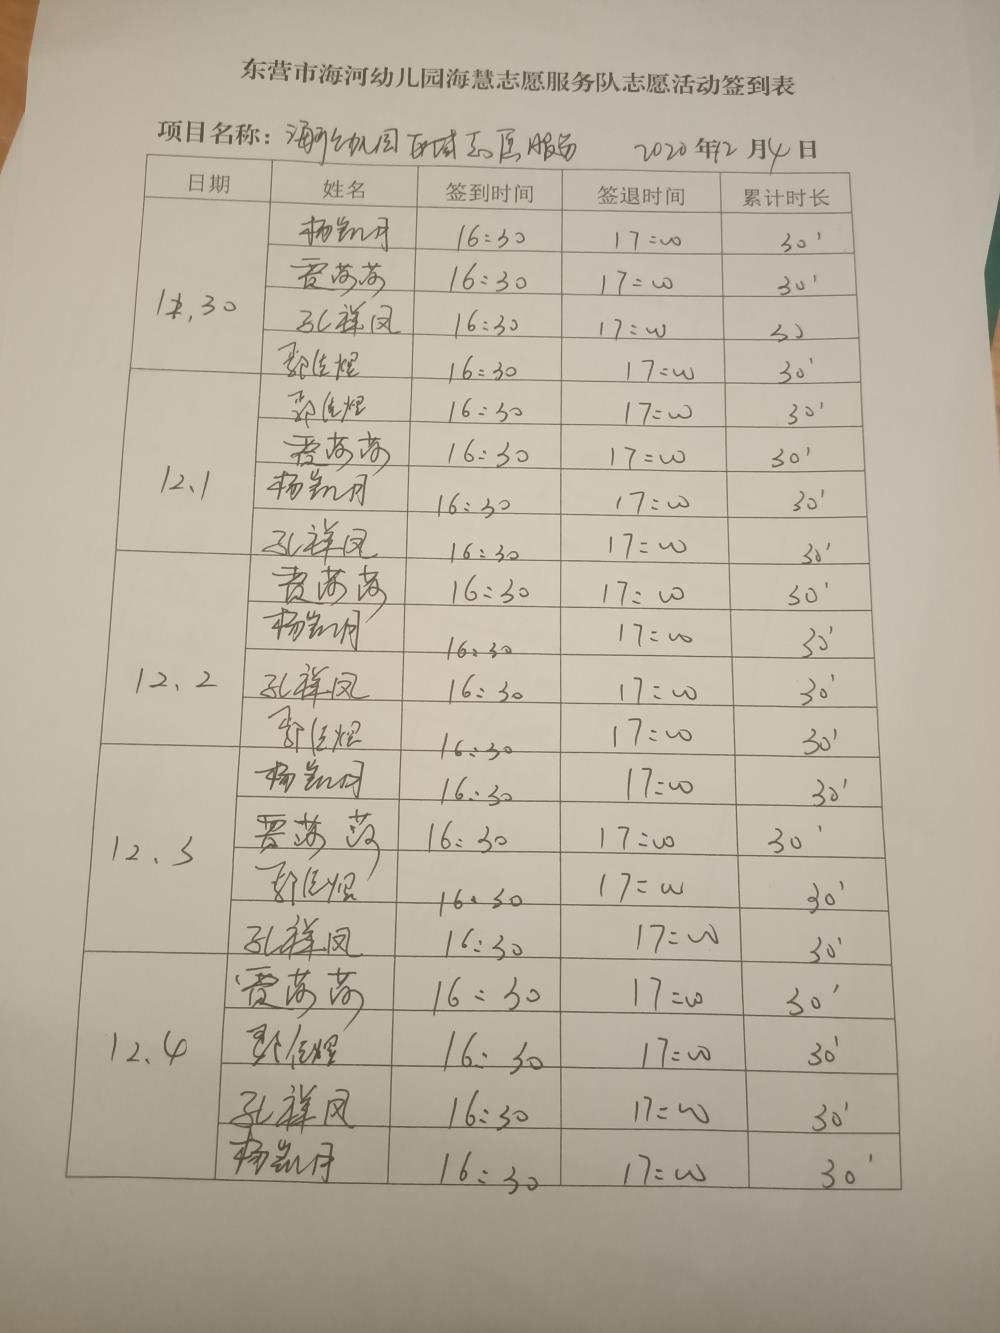 东营市海河幼儿园海慧志愿服务队志愿活动签到表
项目名称：海河幼儿园区域志愿服务 2020年12月4日
日期 姓名 签到时间 签退时间 累计时长
11.30 杨凯月 16:30 17:00 30'
贾苏苏 16:30 17:00 30'
孔祥凤 16:30 17:00 30
郭佳煜 16:30 17:00 30'
12.1 郭佳煜 16:30 17:00 30'
贾苏苏 16:30 17:00 30'
杨凯月 16:30 17:00 30'
孔祥凤 16:30 17:00 30'
12.2 贾苏苏 16:30 17:00 30'
杨凯月 16:30 17:00 30'
孔祥凤 16:30 17:00 30'
郭佳煜 16:30 17:00 30'
12.3 杨凯月 16:30 17:00 30'
贾苏苏 16:30 17:00 30'
郭佳煜 16:30 17:00 30'
孔祥凤 16:30 17:00 30'
12.4 贾苏苏 16:30 17:00 30'
郭佳煜 16:30 17:00 30'
孔祥凤 16:30 17:00 30'
杨凯月 16:30 17:00 30'